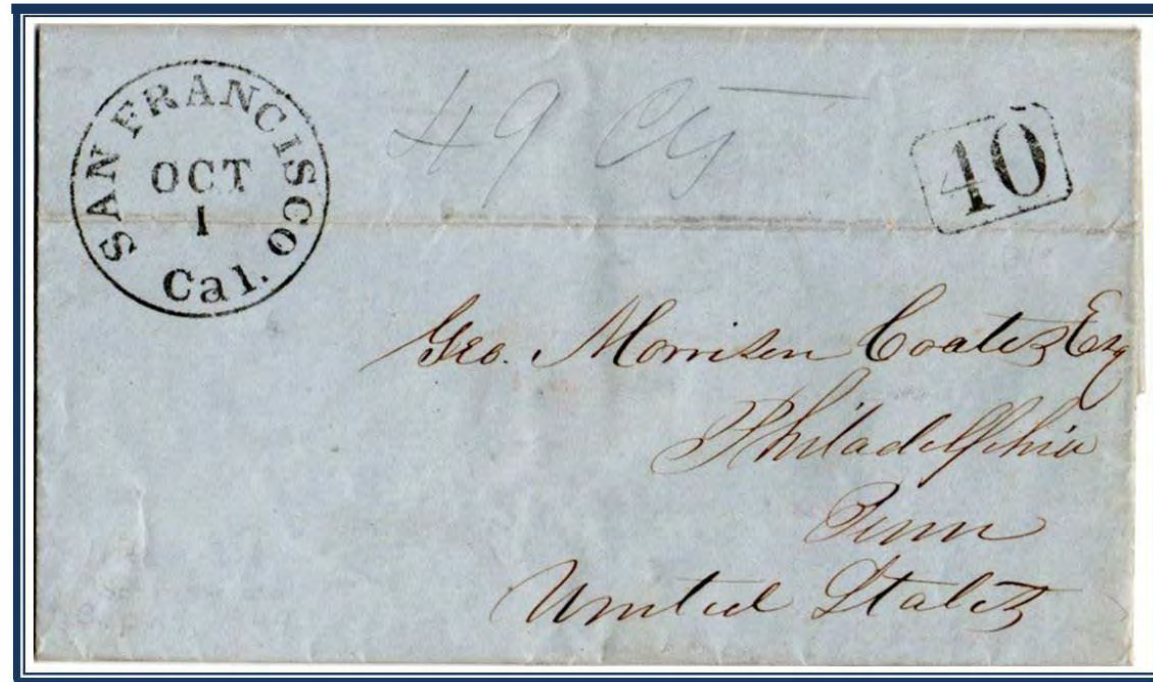 SAN FRANCISCO
OCT
1
Cal.
49
40
Geo. Morrison Coates Esq
Philadelphia
Penn
United States